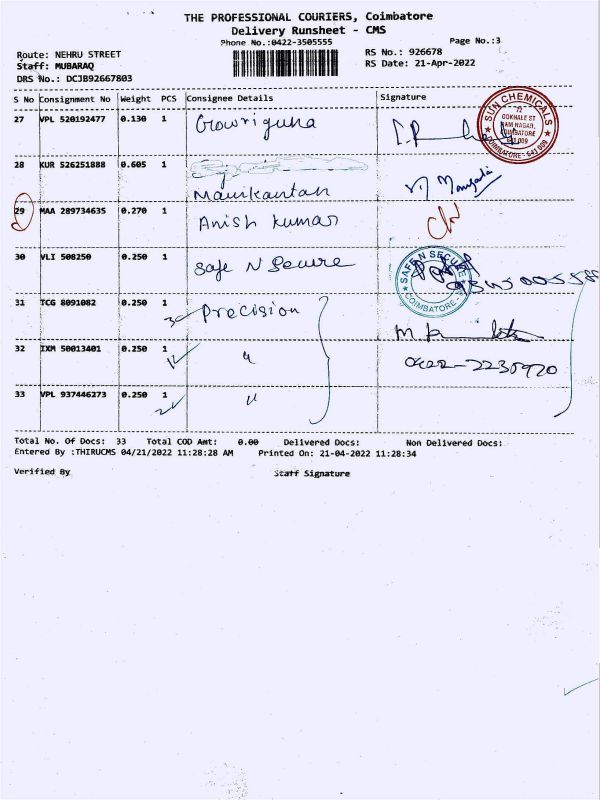 THE PROFESSIONAL COURIERS, Coimbatore
Delivery Runsheet - CMS
Phone No.:0422-3505555
Page No.:3
Route: NEHRU STREET
RS No.: 926678
Staff: MUBARAQ
RS Date: 21-Apr-2022
DRS No.: DCJB92667803
S No Consignment No Weight PCS Consignee Details Signature
27 VPL 520192477 0.130 1 Gowriguha
SUN CHEMICALS
GOKHALE ST
RAM NAGAR,
COIMBATORE
641 009
COIMBATORE - 641 009
28 KUR 526251888 0.605 1
Manikantan
29 MAA 289734635 0.270 1 Anish kumar
30 VLI 508250 0.250 1 Safe N Secure
SAFE N SECURE
COIMBATORE
31 TCG 8091082 0.250 1 Precision
32 IXM 50013401 0.250 1 "
0422-2230920
33 VPL 937446273 0.250 1 "
Total No. Of Docs: 33 Total COD Amt: 0.00 Delivered Docs: Non Delivered Docs:
Entered By :THIRUCMS 04/21/2022 11:28:28 AM Printed On: 21-04-2022 11:28:34
Verified By Staff Signature